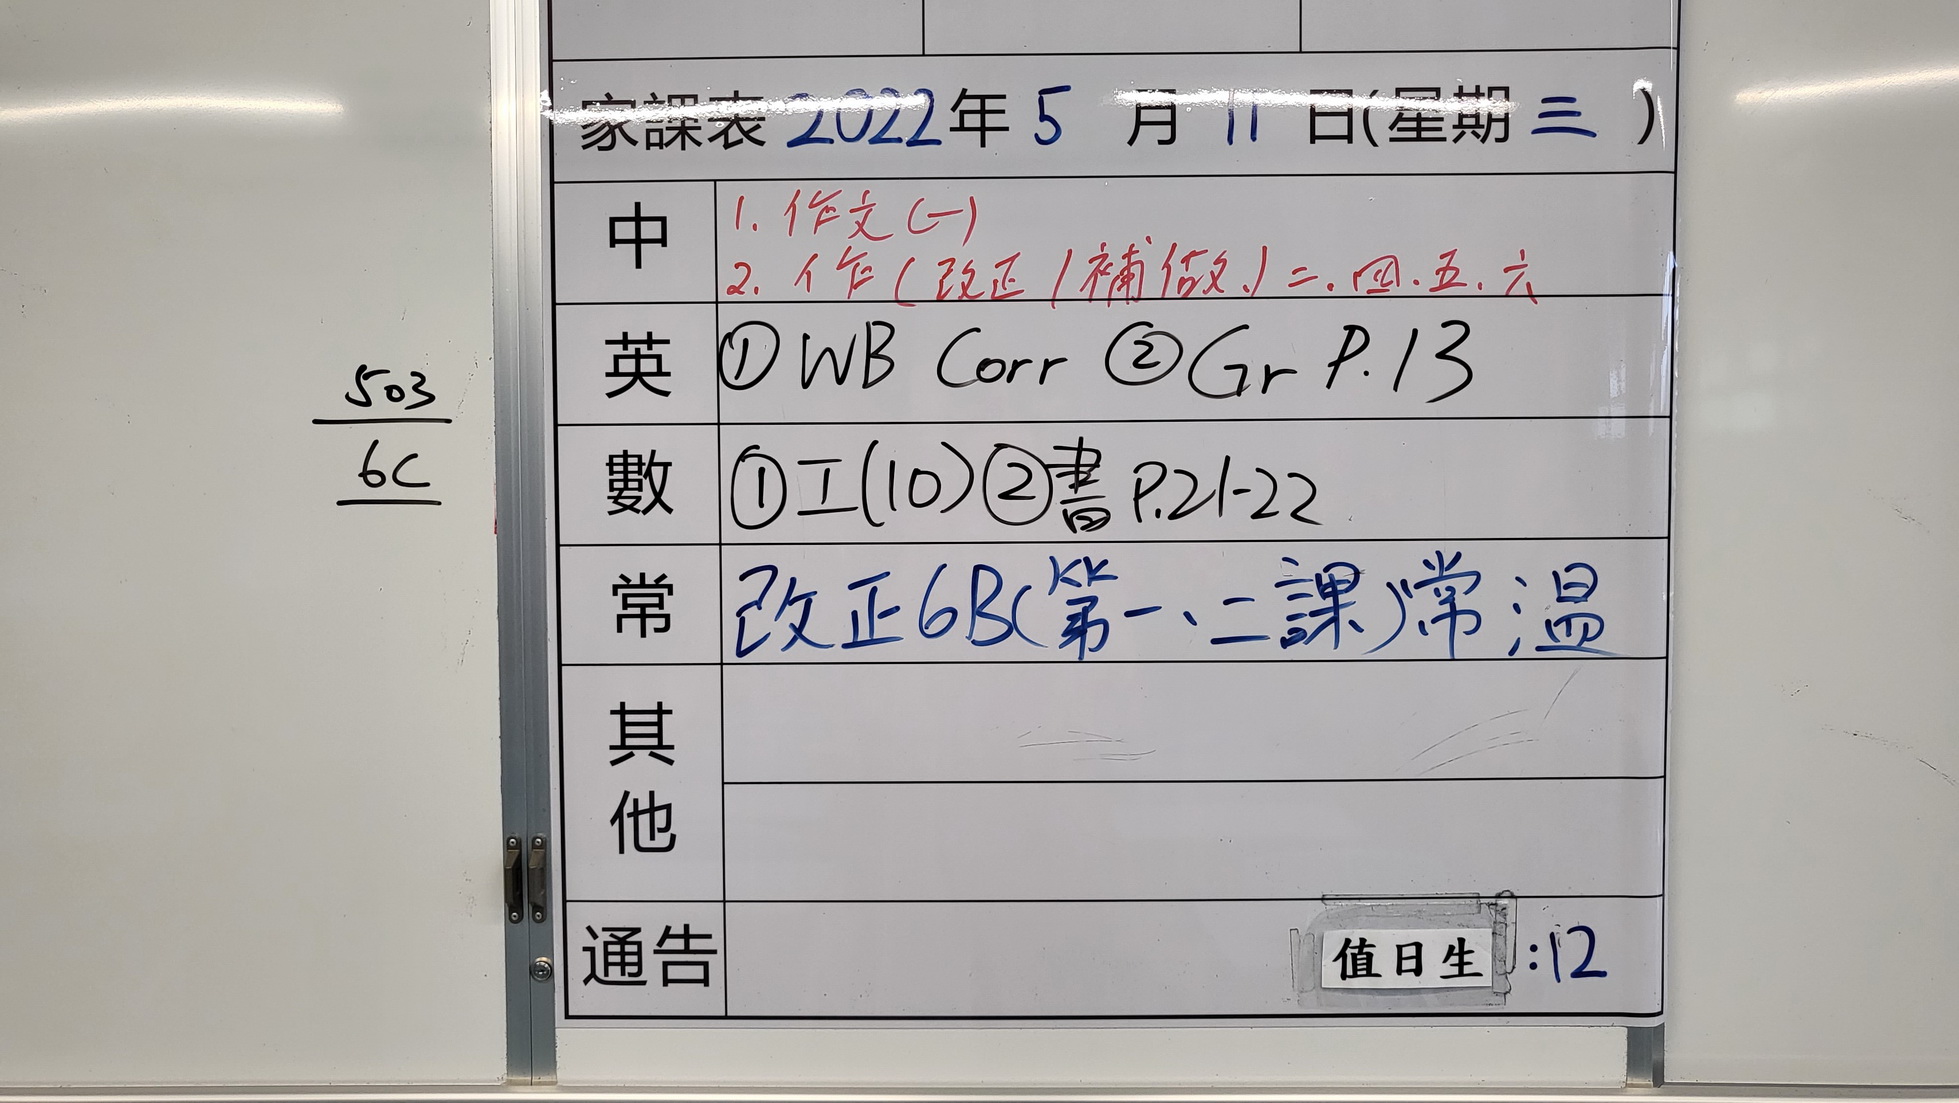 家課表 2022年 5 月 11 日(星期 三 )
中
1. 作文(一)
2. 作(改正/補做)二.四.五.六
英
① WB Corr ② Gr P.13
數
① 工(10) ② 書 P.21-22
常
改正6B(第一、二課)常溫
其他
通告
值日生 :12
503
6C